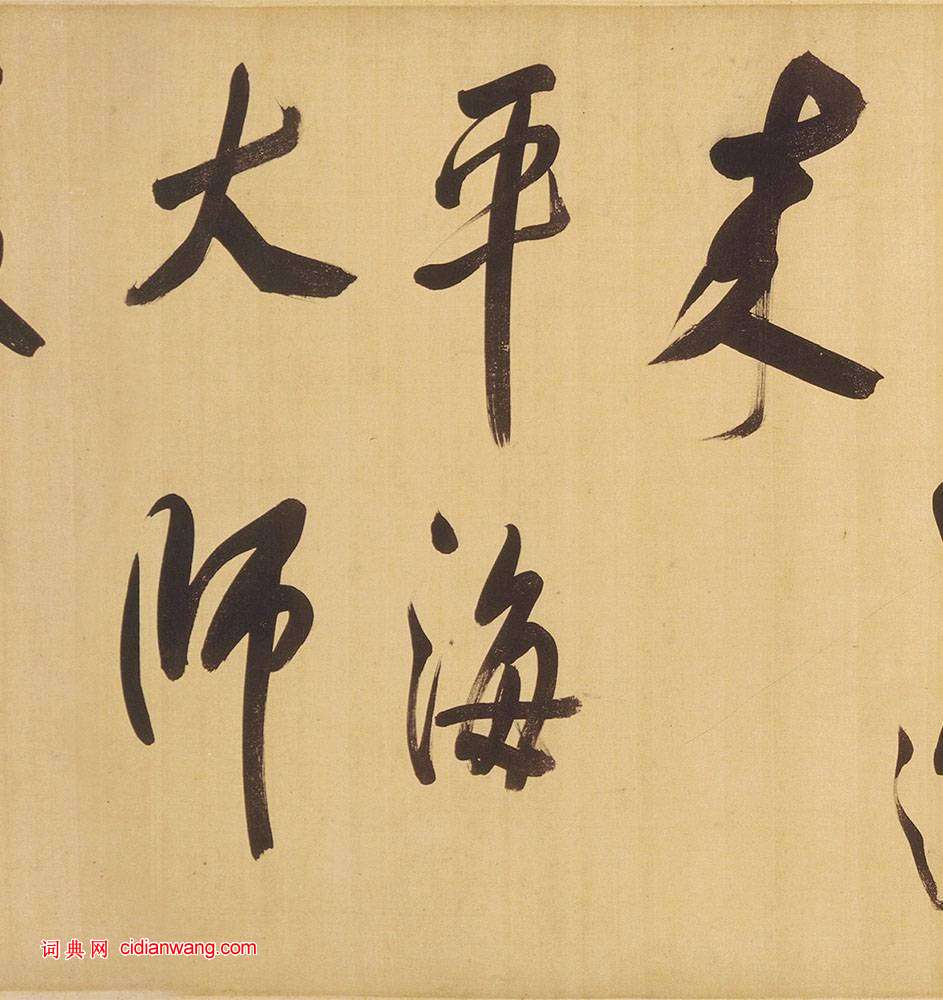 平海
大师
词典网 cidianwang.com